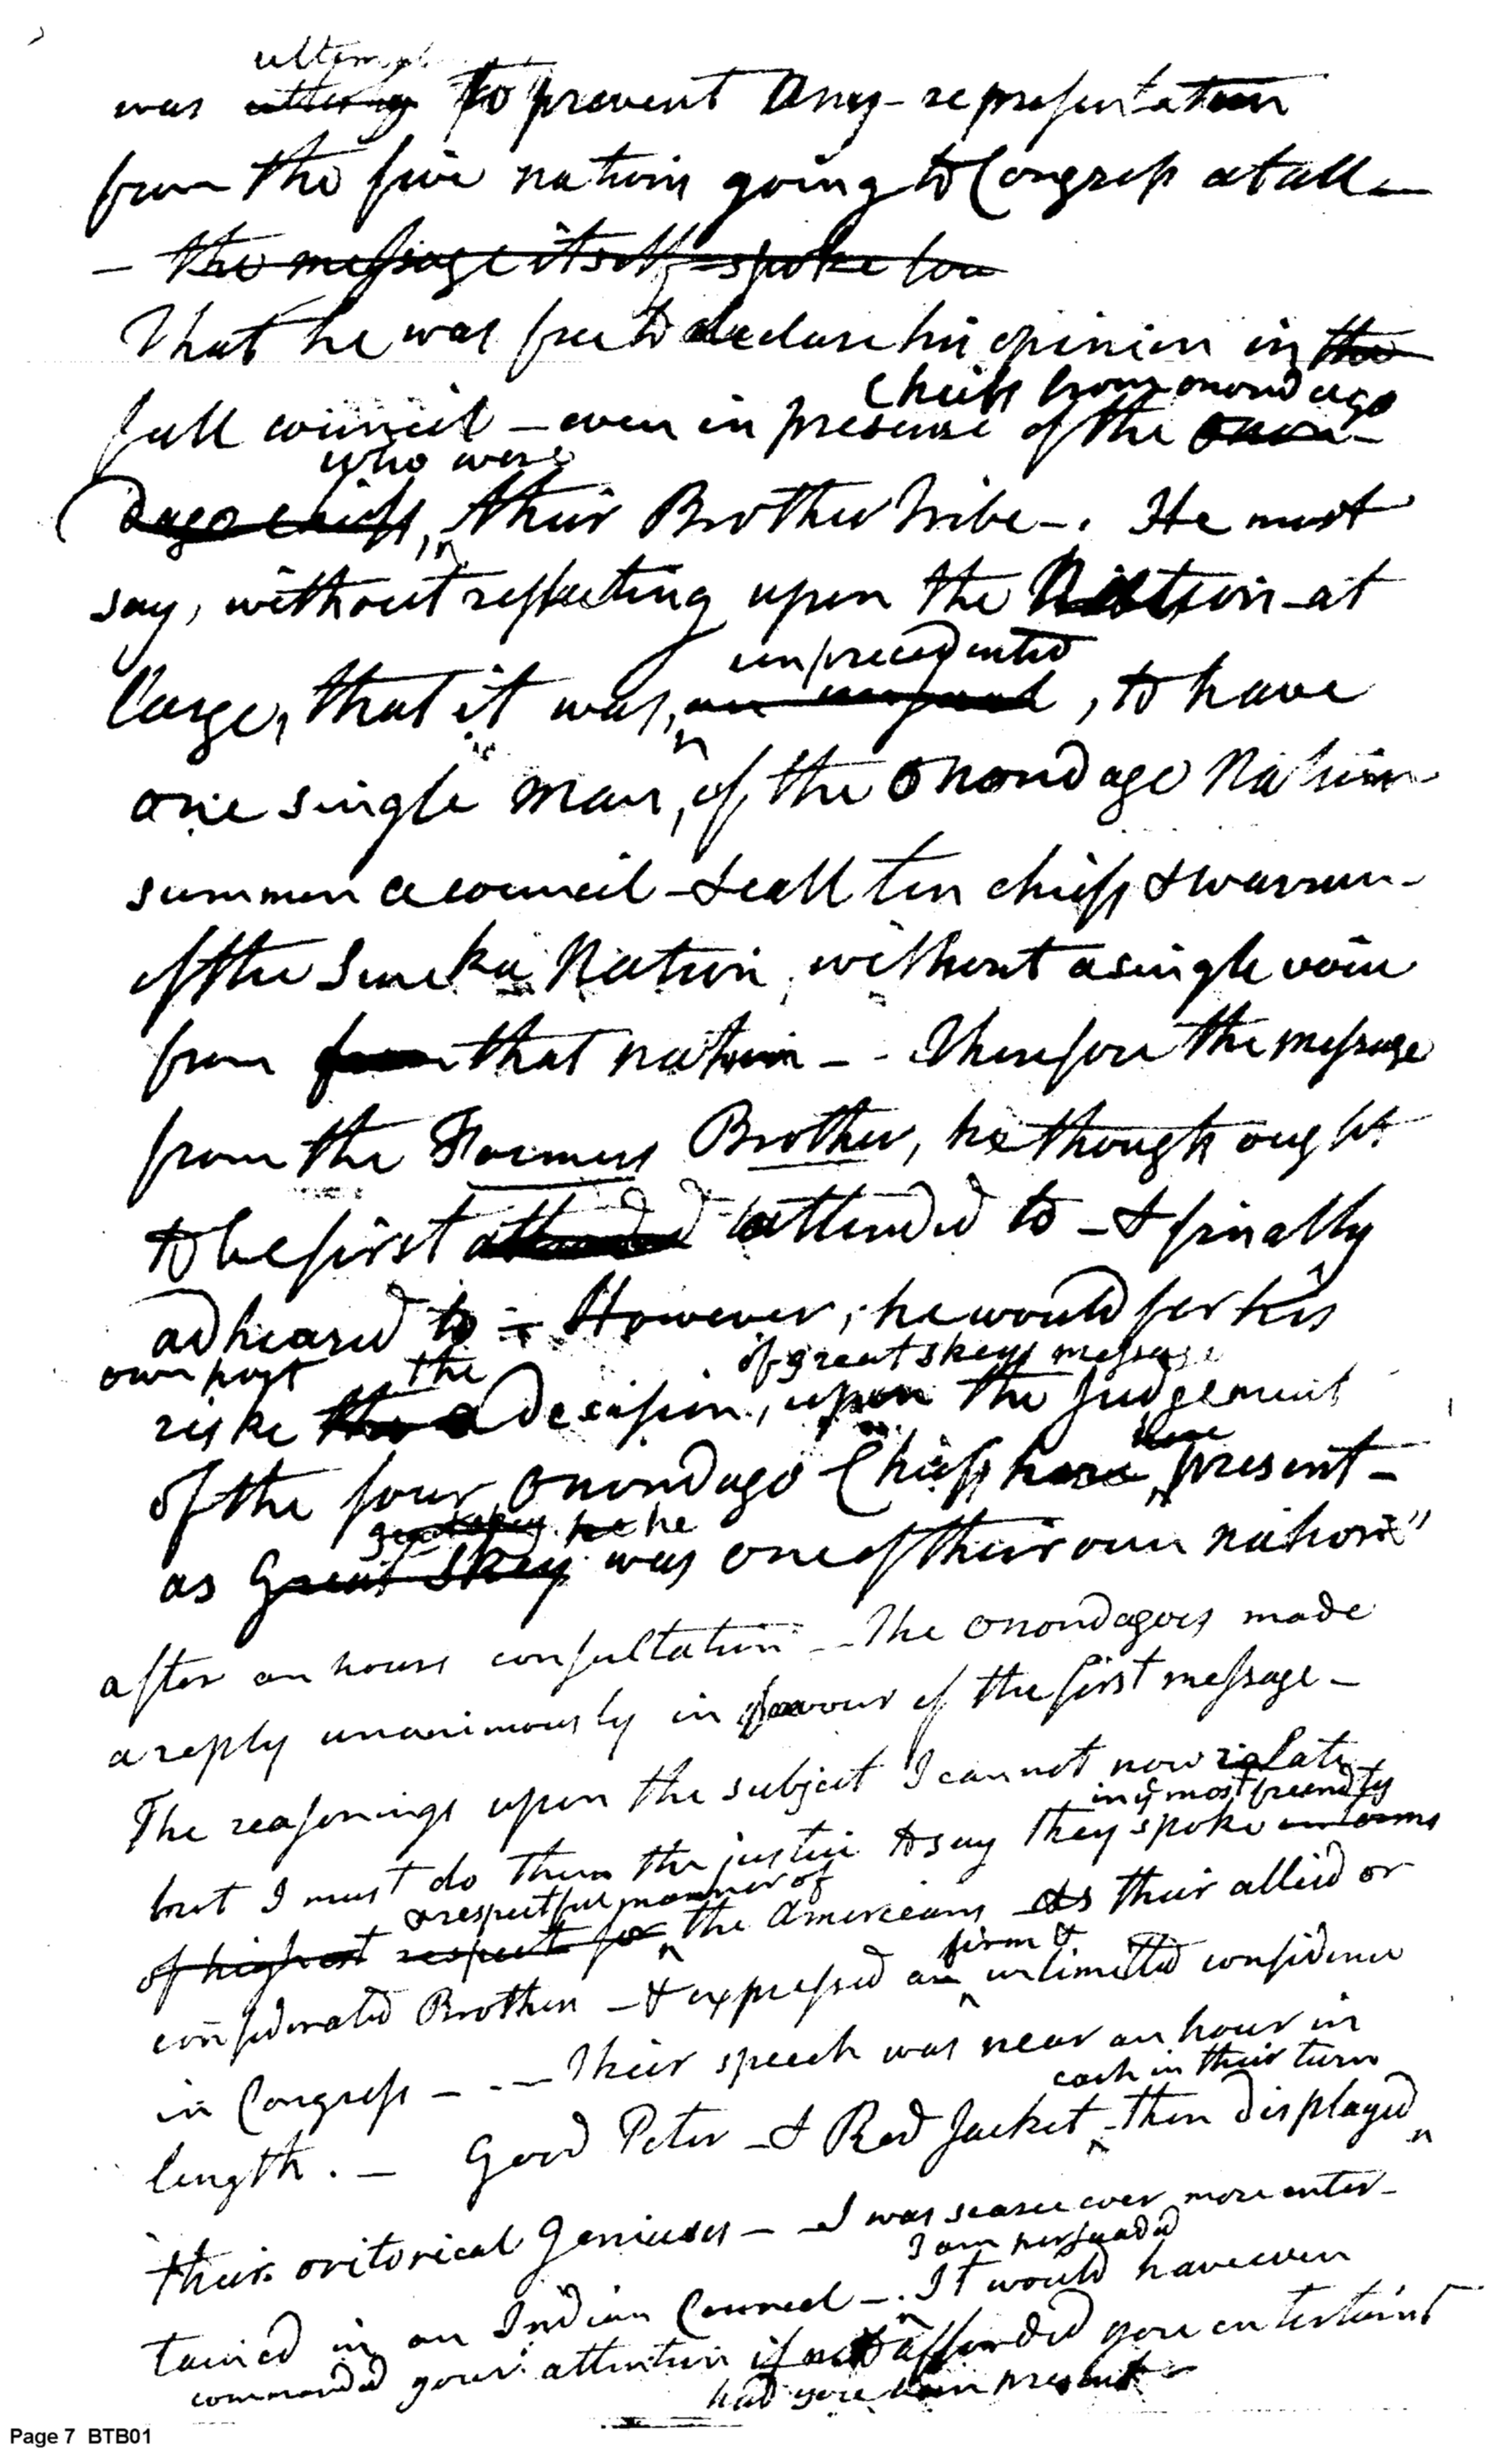 ultem
was to prevent any representation
from the five nations going to Congress at all -
- the message itself - spoke lou
That he was free to declare his opinion in the
Chiefs from onondago
full council - even in presense of the onon-
who were
dago chiefs, their Brother Tribe -. He must
say, without reflecting upon the Nation at
unprecedented
large, that it was, an , to have
one single man, of the Onondago Nation
summon a council - & call ten chiefs & warriors
of the Seneka Nation, without a single voice
from from that nation - - Therefore the message
from the Farmers Brother, he though ought
to be first attended attended to - & finally
adheared to - However, he would for his
own part the of great skeys message
riske the a Decision, upon the Judgement
here
of the four Onondago Chiefs here present -
great skey he he
as Great Skey was one of their own nation"
after an hours consultation - The Onondagoes made
a reply unanimously in favour of the first message -
The reasonings upon the subject I cannot now relate
in ye most freendly
but I must do them the justice to say they spoke in terms
& respectful manner of
of highest respect for the Americans as their allied or
firm &
confederated Brothers - & expressed an unlimitted confidence
in Congress - - - Their speech was near an hour in
each in their turn
length. - Good Peter - & Red Jacket then displayed
their oritorical Geniuses - I was scarce ever more enter-
I am persuaded
tained in an Indian Council -. It would have even
commanded your attention if not afforded you entertaint
had you been present -
Page 7 BTB01